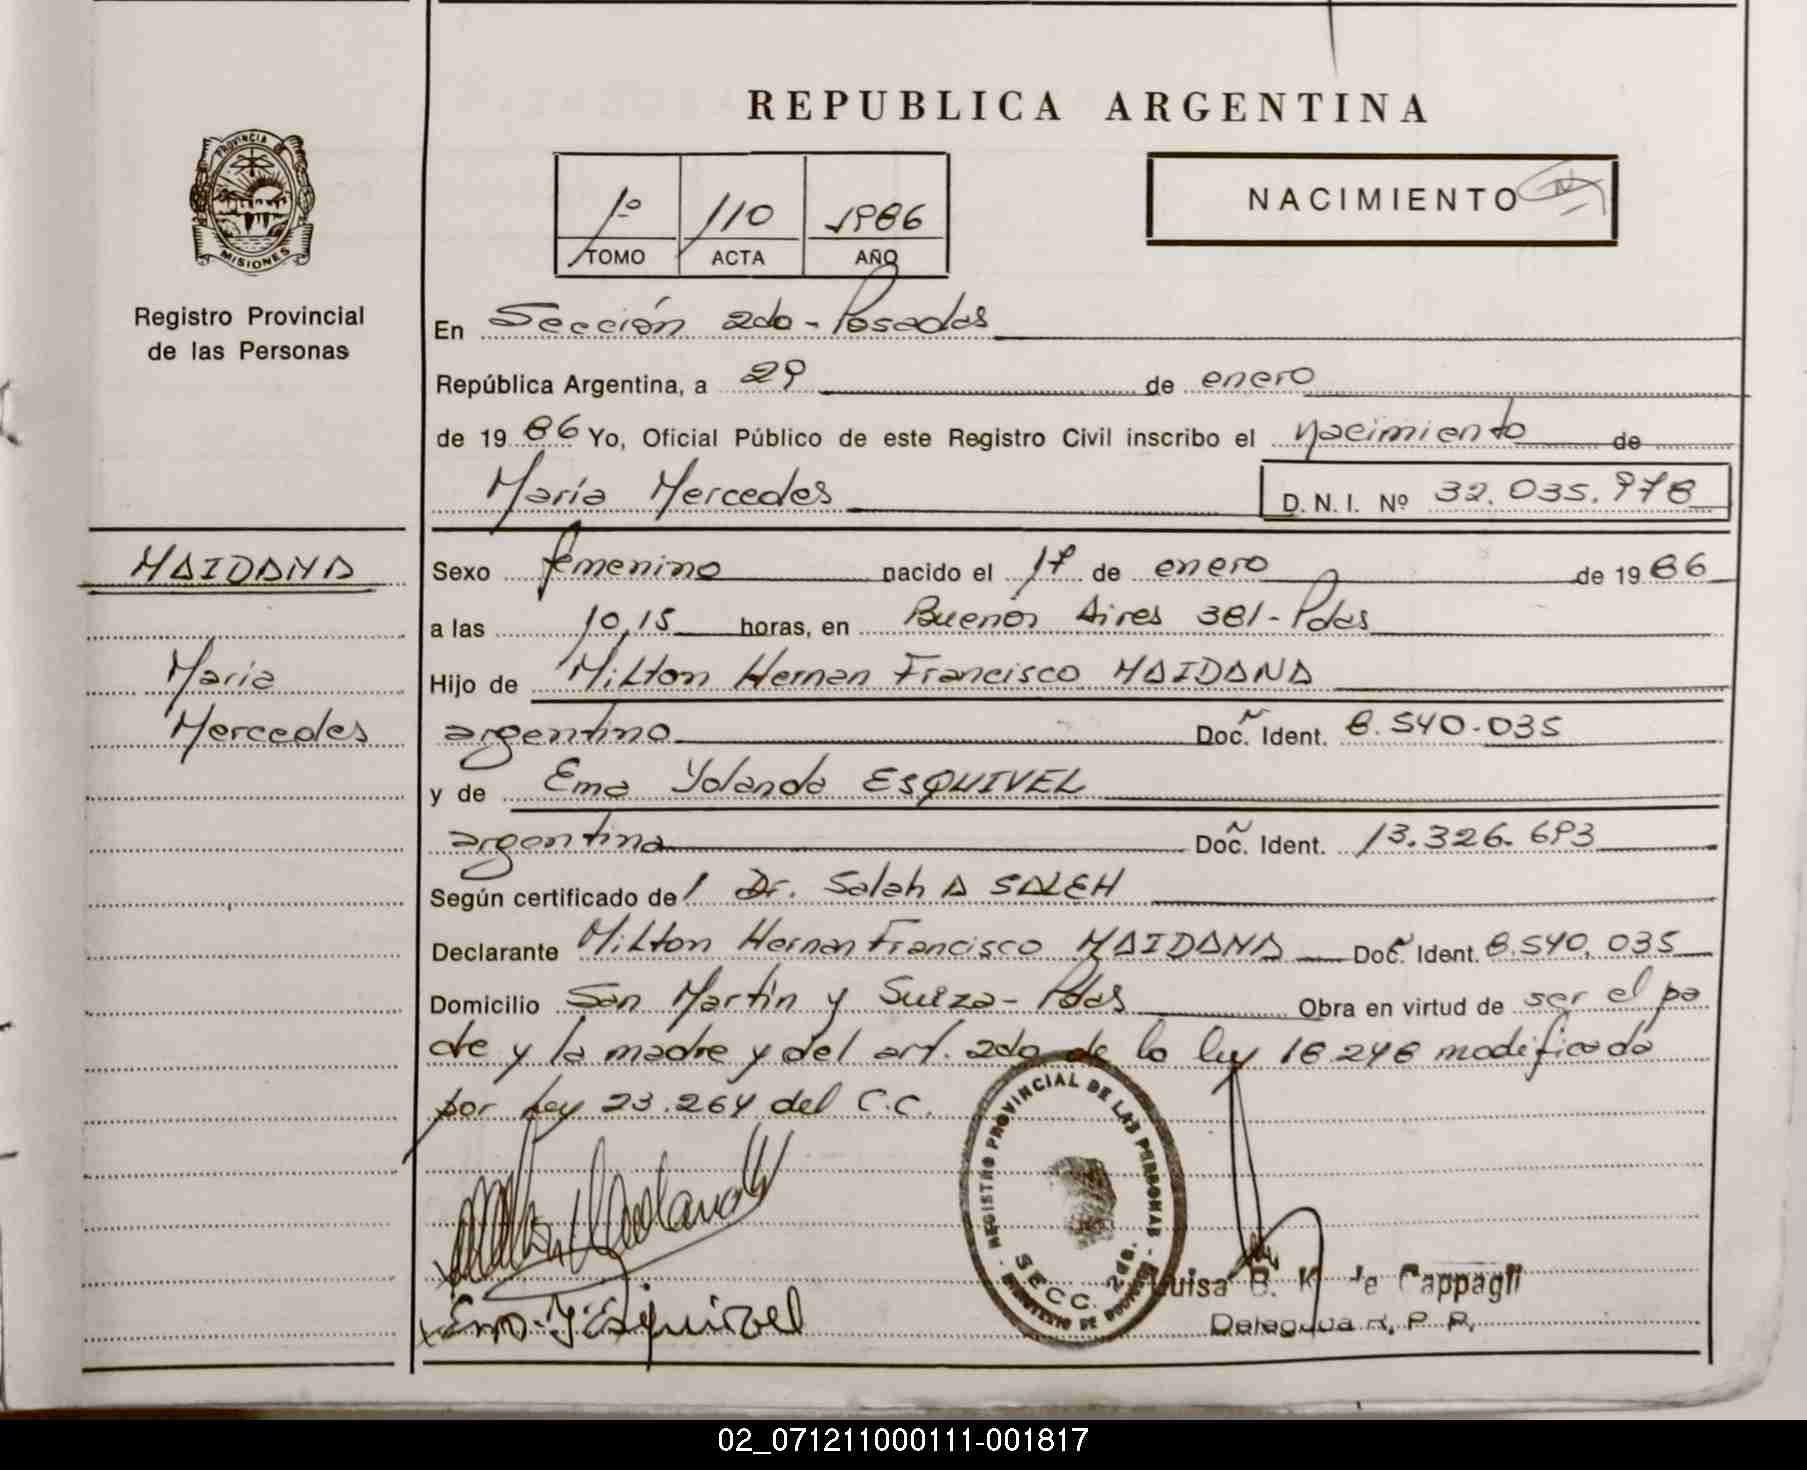 REPUBLICA ARGENTINA
PROVINCIA D
MISIONES
Registro Provincial
de las Personas
1º 110 1986
TOMO ACTA AÑO
NACIMIENTO
En Sección 2da - Posadas
República Argentina, a 29 de enero
de 19 86 Yo, Oficial Público de este Registro Civil inscribo el nacimiento de
María Mercedes D. N. I. Nº 32.035.978
MAIDANA
María
Mercedes
Sexo femenino nacido el 17 de enero de 19 86
a las 10,15 horas, en Buenos Aires 381 - Pdas
Hijo de Milton Hernan Francisco MAIDANA
argentino Doc. Ident. 8.540.035
y de Ema Yolanda ESQUIVEL
argentina Doc. Ident. 13.326.693
Según certificado de l Dr. Salah A SALEH
Declarante Milton Hernan Francisco MAIDANA Doc. Ident. 8.540.035
Domicilio San Martín y Suiza - Pdas Obra en virtud de ser el pa
dre y la madre y del art. 2do de la ley 18.248 modificada
por Ley 23.264 del C.C.
REGISTRO PROVINCIAL DE LAS PERSONAS
SECC. 2da.
Ema Y Esquivel
Luisa B. K de Cappagli
Delegada R. P. P.
02_071211000111-001817